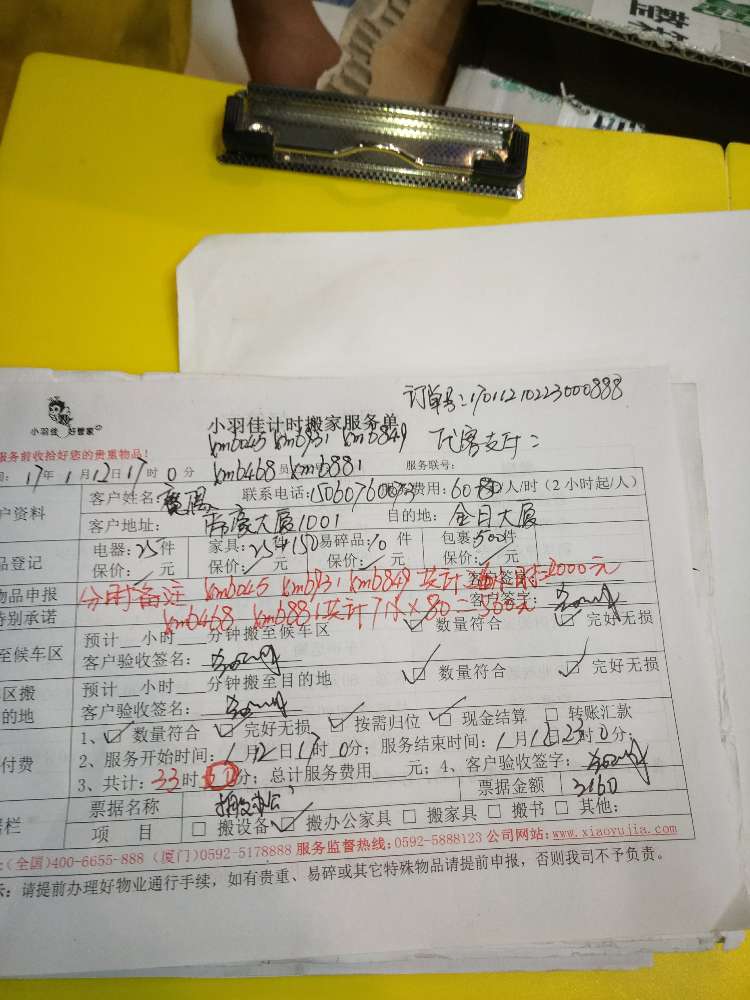 订单号:17011210223000888
小羽佳 好管家
小羽佳计时搬家服务单
服务前收拾好您的贵重物品!
kmb045 kmb931 kmb849
kmb468 kmb881 服务联号:
17年1月12日17时0分
客户资料 客户姓名: 联系电话: 费用:60 /人/时(2小时起/人)
客户地址: 大厦1001 目的地:金日大厦
品登记 电器:25件 家具: 件 易碎品:10件 包裹:500件
保价: 元 保价: 元 保价: 元 保价: 元
物品申报 分时备注 kmb045 kmb931 kmb849 共计 元
特别承诺 kmb468 kmb881共计7 ×80=560元 客户签字:
至候车区 预计 小时 分钟搬至候车区 数量符合 完好无损
客户验收签名:
区搬 预计 小时 分钟搬至目的地 数量符合 完好无损
的地 客户验收签名:
1、 数量符合 完好无损 按需归位 现金结算 转账汇款
付费 2、服务开始时间:1月12日17时0分; 服务结束时间:1月12日23时0分;
3、共计:33时 分; 总计服务费用 元; 4、客户验收签字:
票据名称 票据金额 3160
项 目 搬设备 搬办公家具 搬家具 搬书 其他:
(全国)400-6655-888 (厦门)0592-5178888 服务监督热线:0592-5888123 公司网站:www.xiaoyujia.com
示:请提前办理好物业通行手续,如有贵重、易碎或其它特殊物品请提前申报,否则我司不予负责。